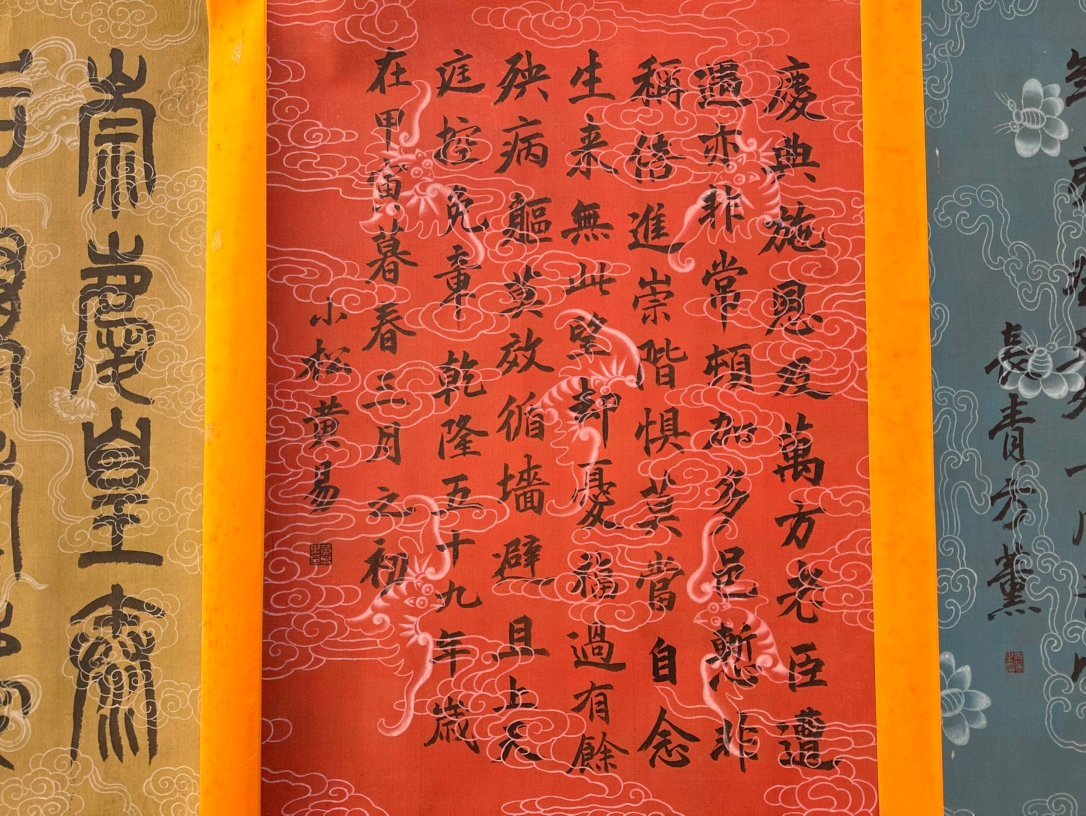 長青方薰
慶典施恩及萬方老臣遭
遇亦非常頓加多邑慙非
稱倍進崇階懼莫當自念
生来無此望却憂福過有餘
殃病軀莫效循墻避且上元
庭控免章 乾隆五十九年歲
在甲寅暮春三月之初
小松黄易
崇慶皇